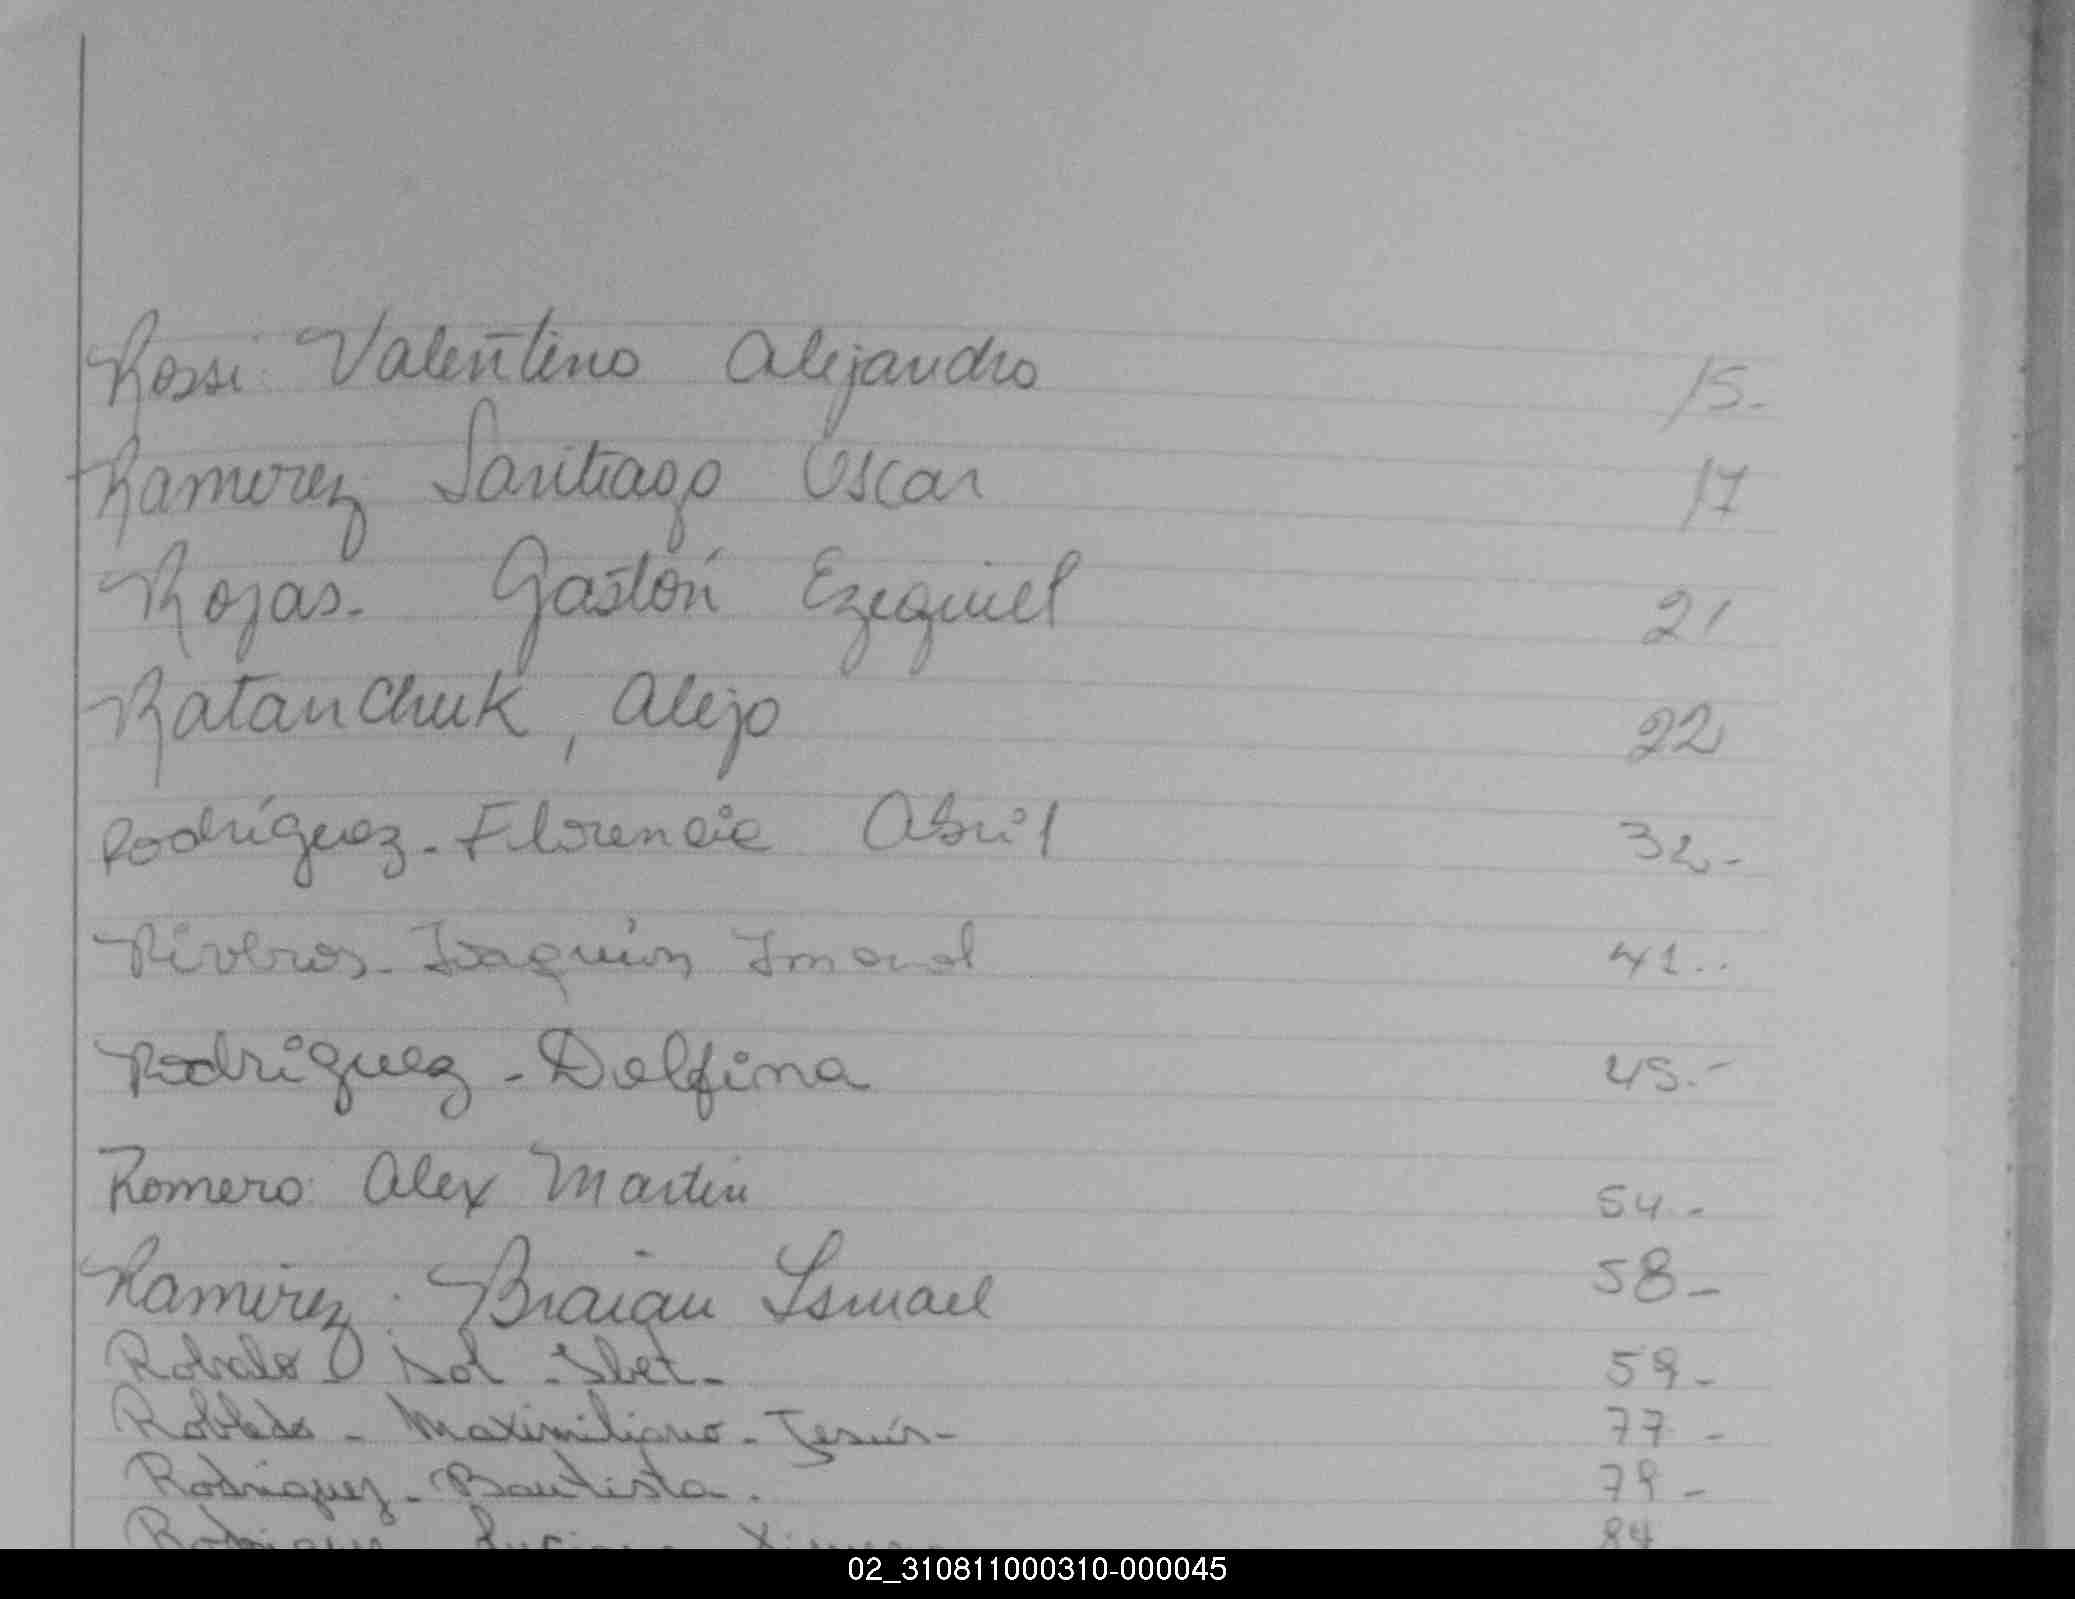 Rossi Valentino Alejandro 15.
Ramirez Santiago Oscar 17
Rojas. Gastón Ezequiel 21
Ratanchuk, Alejo 22
Rodríguez - Florencia Abril 32-
Riveros - Joaquín 41..
Rodriguez - Delfina 45.-
Romero Alex Martin 54.-
Ramirez. Braian Ismael 58-
Sol - 59-
Robledo - Maximiliano - Jesús - 77-
Rodriguez - Bautista. 79-
Rodriguez 84
02_310811000310-000045